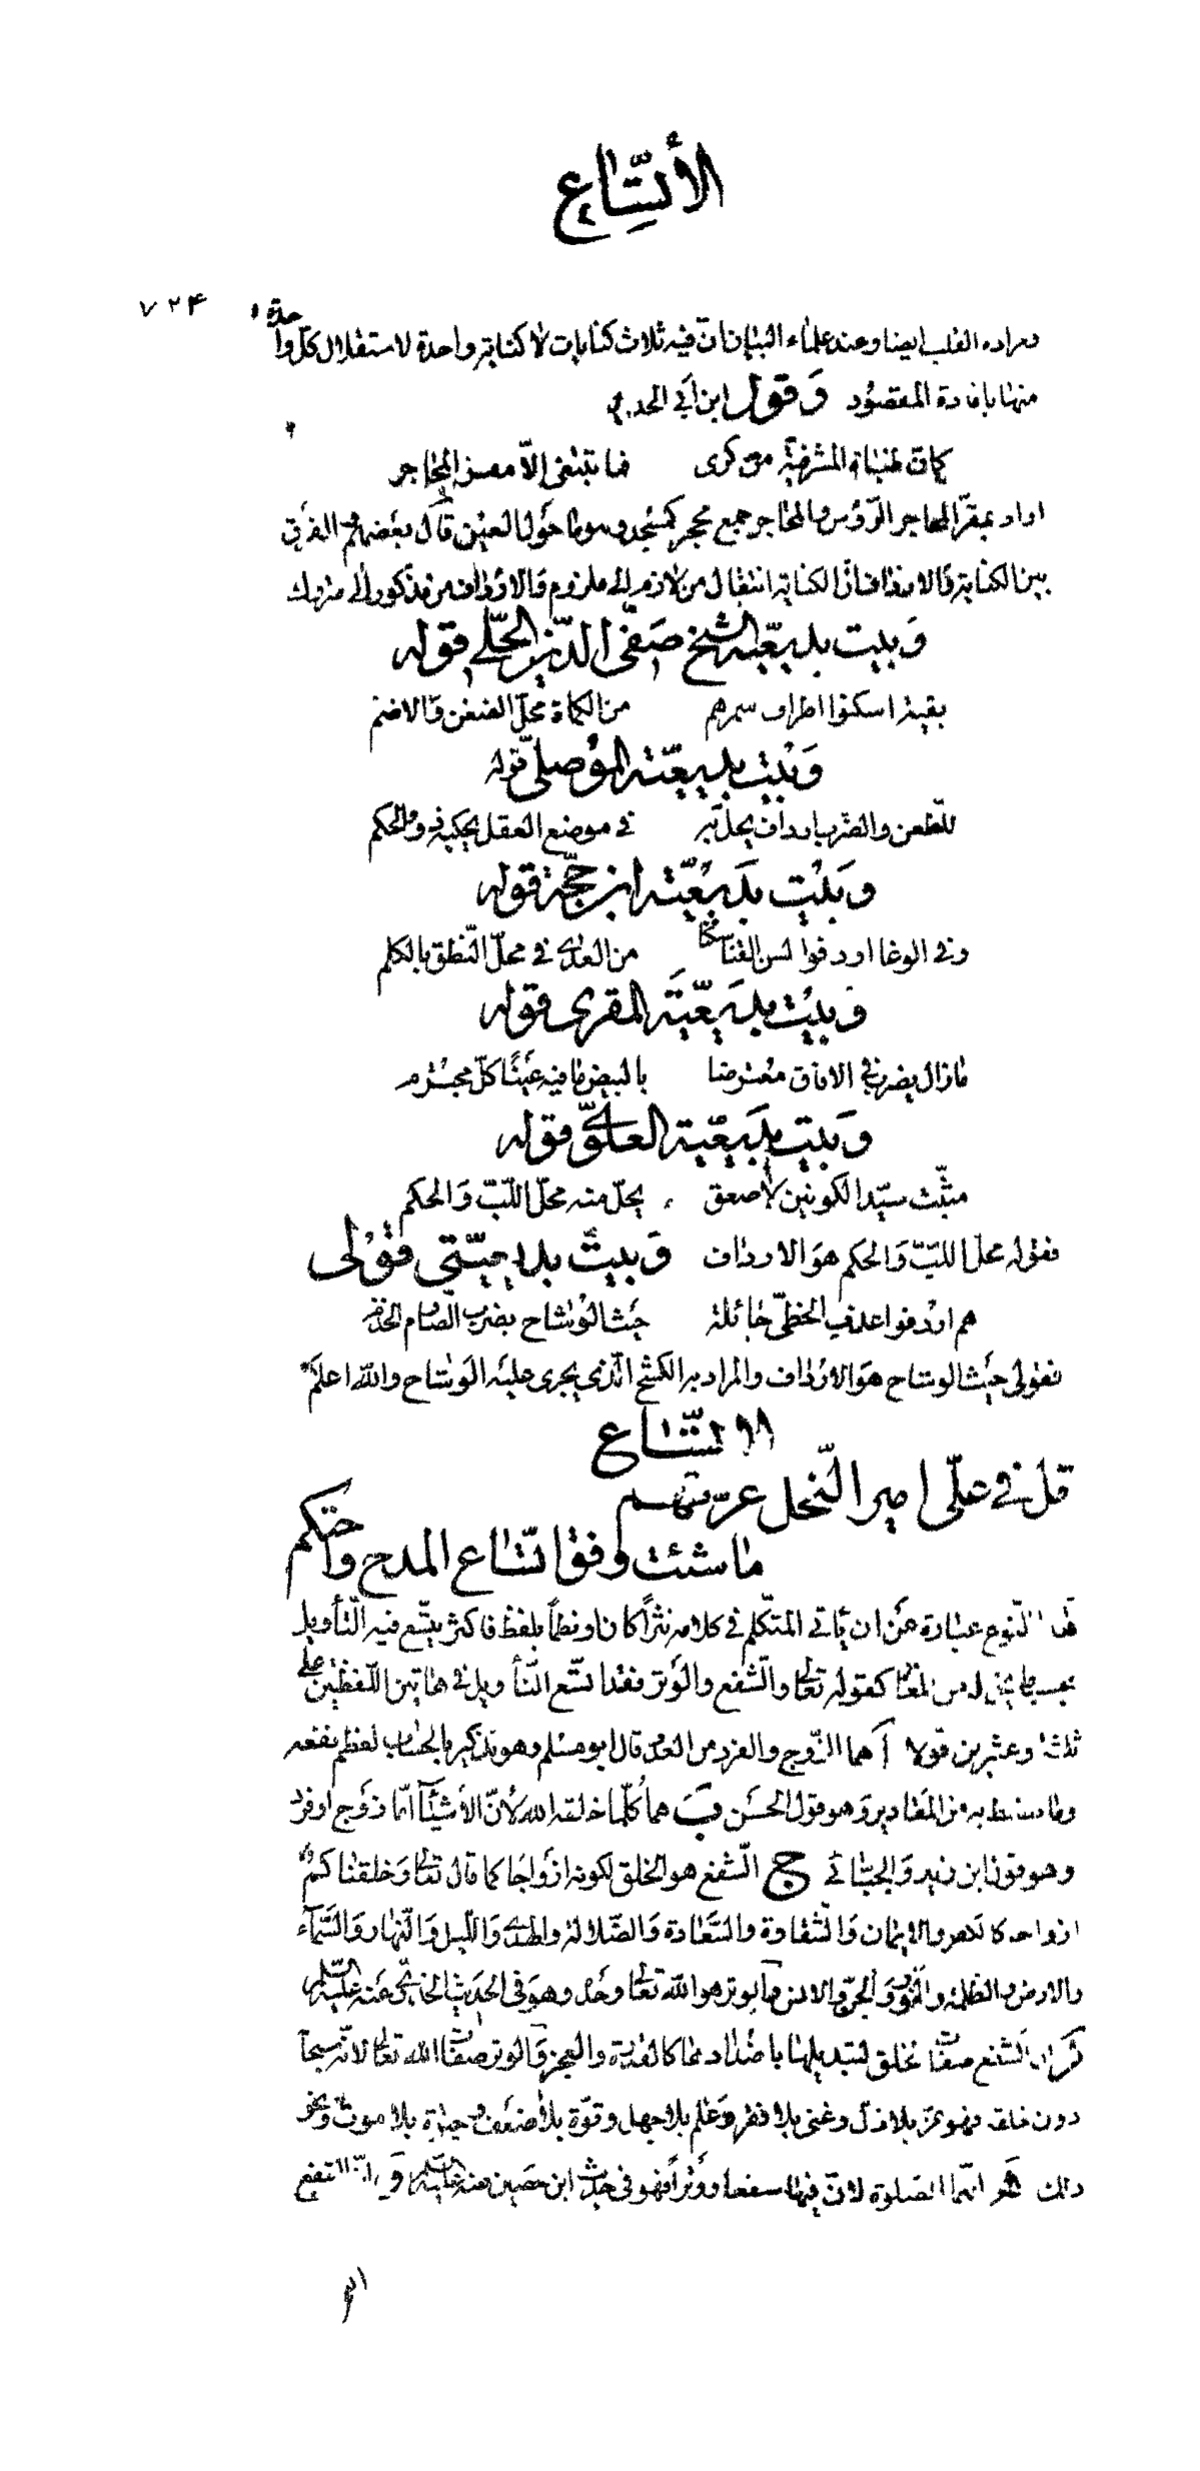 الأتّساع
۷۲۴
ومراده القلب ايضا وعند علماء البيان انّ فيه ثلاث كنايات لا كناية واحدة لاستقلال كلّ واحدة
منها بافادة المقصود وقول ابن أبي الحديد
كانّ ظباة المشرفيّة من كرى فما تبتغى الّا مقرّ المحاجر
اراد بمقرّ المحاجر الرّؤس والمحاجر جمع محجر كمسجد وهو ما حول العين قال بعضهم والفرق
بين الكناية والارداف انّ الكناية انتقال من لازم الى ملزوم والارداف من مذكور الى متروك
وبيت بديعيّة الشيخ صفىّ الدّين الحلّى قوله
بفتية اسكنوا اطراف سمرهم من الكماة محلّ الضغن والاضم
وبيت بديعيّة الموصلىّ قوله
للطّعن والضّرب ارداف يحلّ به في موضع العقل يحكيه ذو الحكم
وبيت بديعيّة ابن حجّة قوله
وفى الوغا اردفوا لسن القنا سكنا من العدى في محلّ النّطق بالكلم
وبيت بديعيّة المقرى قوله
ما زال يضرب في الافاق معترضا بالبيض ما فيه عينا كلّ مجترم
وبيت بديعيّة العلوىّ قوله
مثبّت سيّد الكونين لا صعق يحلّ منه محلّ اللبّ والحكم
فقوله محلّ اللبّ والحكم هو الارداف وبيت بديعيّتى قولى
هم اردفوا عذب الخطىّ جائلة حيث الوشاح بضرب الصّارم الخذم
فقولى حيث الوشاح هو الارداف والمراد به الكشح الّذى يجرى عليه الوشاح والله اعلم
الاتّساع
قل في علىّ امير النّحل غرّتهم
ما شئت وفق اتّساع المدح واحتكم
هذا النّوع عبارة عن ان يأتى المتكلّم في كلامه نثراً كان او نظماً بلفظ فاكثر يتّسع فيه التّأويل
بحسب ما يحتمله من المعانى كقوله تعالى والشّفع والوتر فقد اتّسع التّأويل في هاتين اللّفظتين على
ثلثة وعشرين قولا آ هما الزّوج والفرد من العدد قال ابو مسلم وهو تذكير بالحساب لعظم نفعه
وما يضبط به من المقادير وهو قول الحسن ب هما كلّما خلقه الله لأنّ الأشياء امّا زوج او فرد
وهو قول ابن زيد والجبائى ج الشّفع هو الخلق لكونه ازواجا كما قال تعالى وخلقناكم
ازواجا كالكفر والايمان والشّقاوة والسّعادة والضّلالة والهدى واللّيل والنّهار والسّماء
والارض والظلمة والنّور والجنّ والانس والوتر هو الله تعالى وحده وهو فى الحديث الخدرى عنه عليه السّلم
د ان الشّفع صفات الخلق لتبديلها باضدادها كالقدرة والعجز والوتر صفات الله تعالى لانّه سبحانه
دون خلقه فهو عزّ بلا ذلّ وغنى بلا فقر وعلم بلا جهل وقوّة بلا ضعف وحياة بلا موت ونحو
ذلك ه انّهما الصّلوة لانّ فيها شفعا ووتراً فهو فى حديث ابن حصين عنه عليه السّلم و انّ الشفع